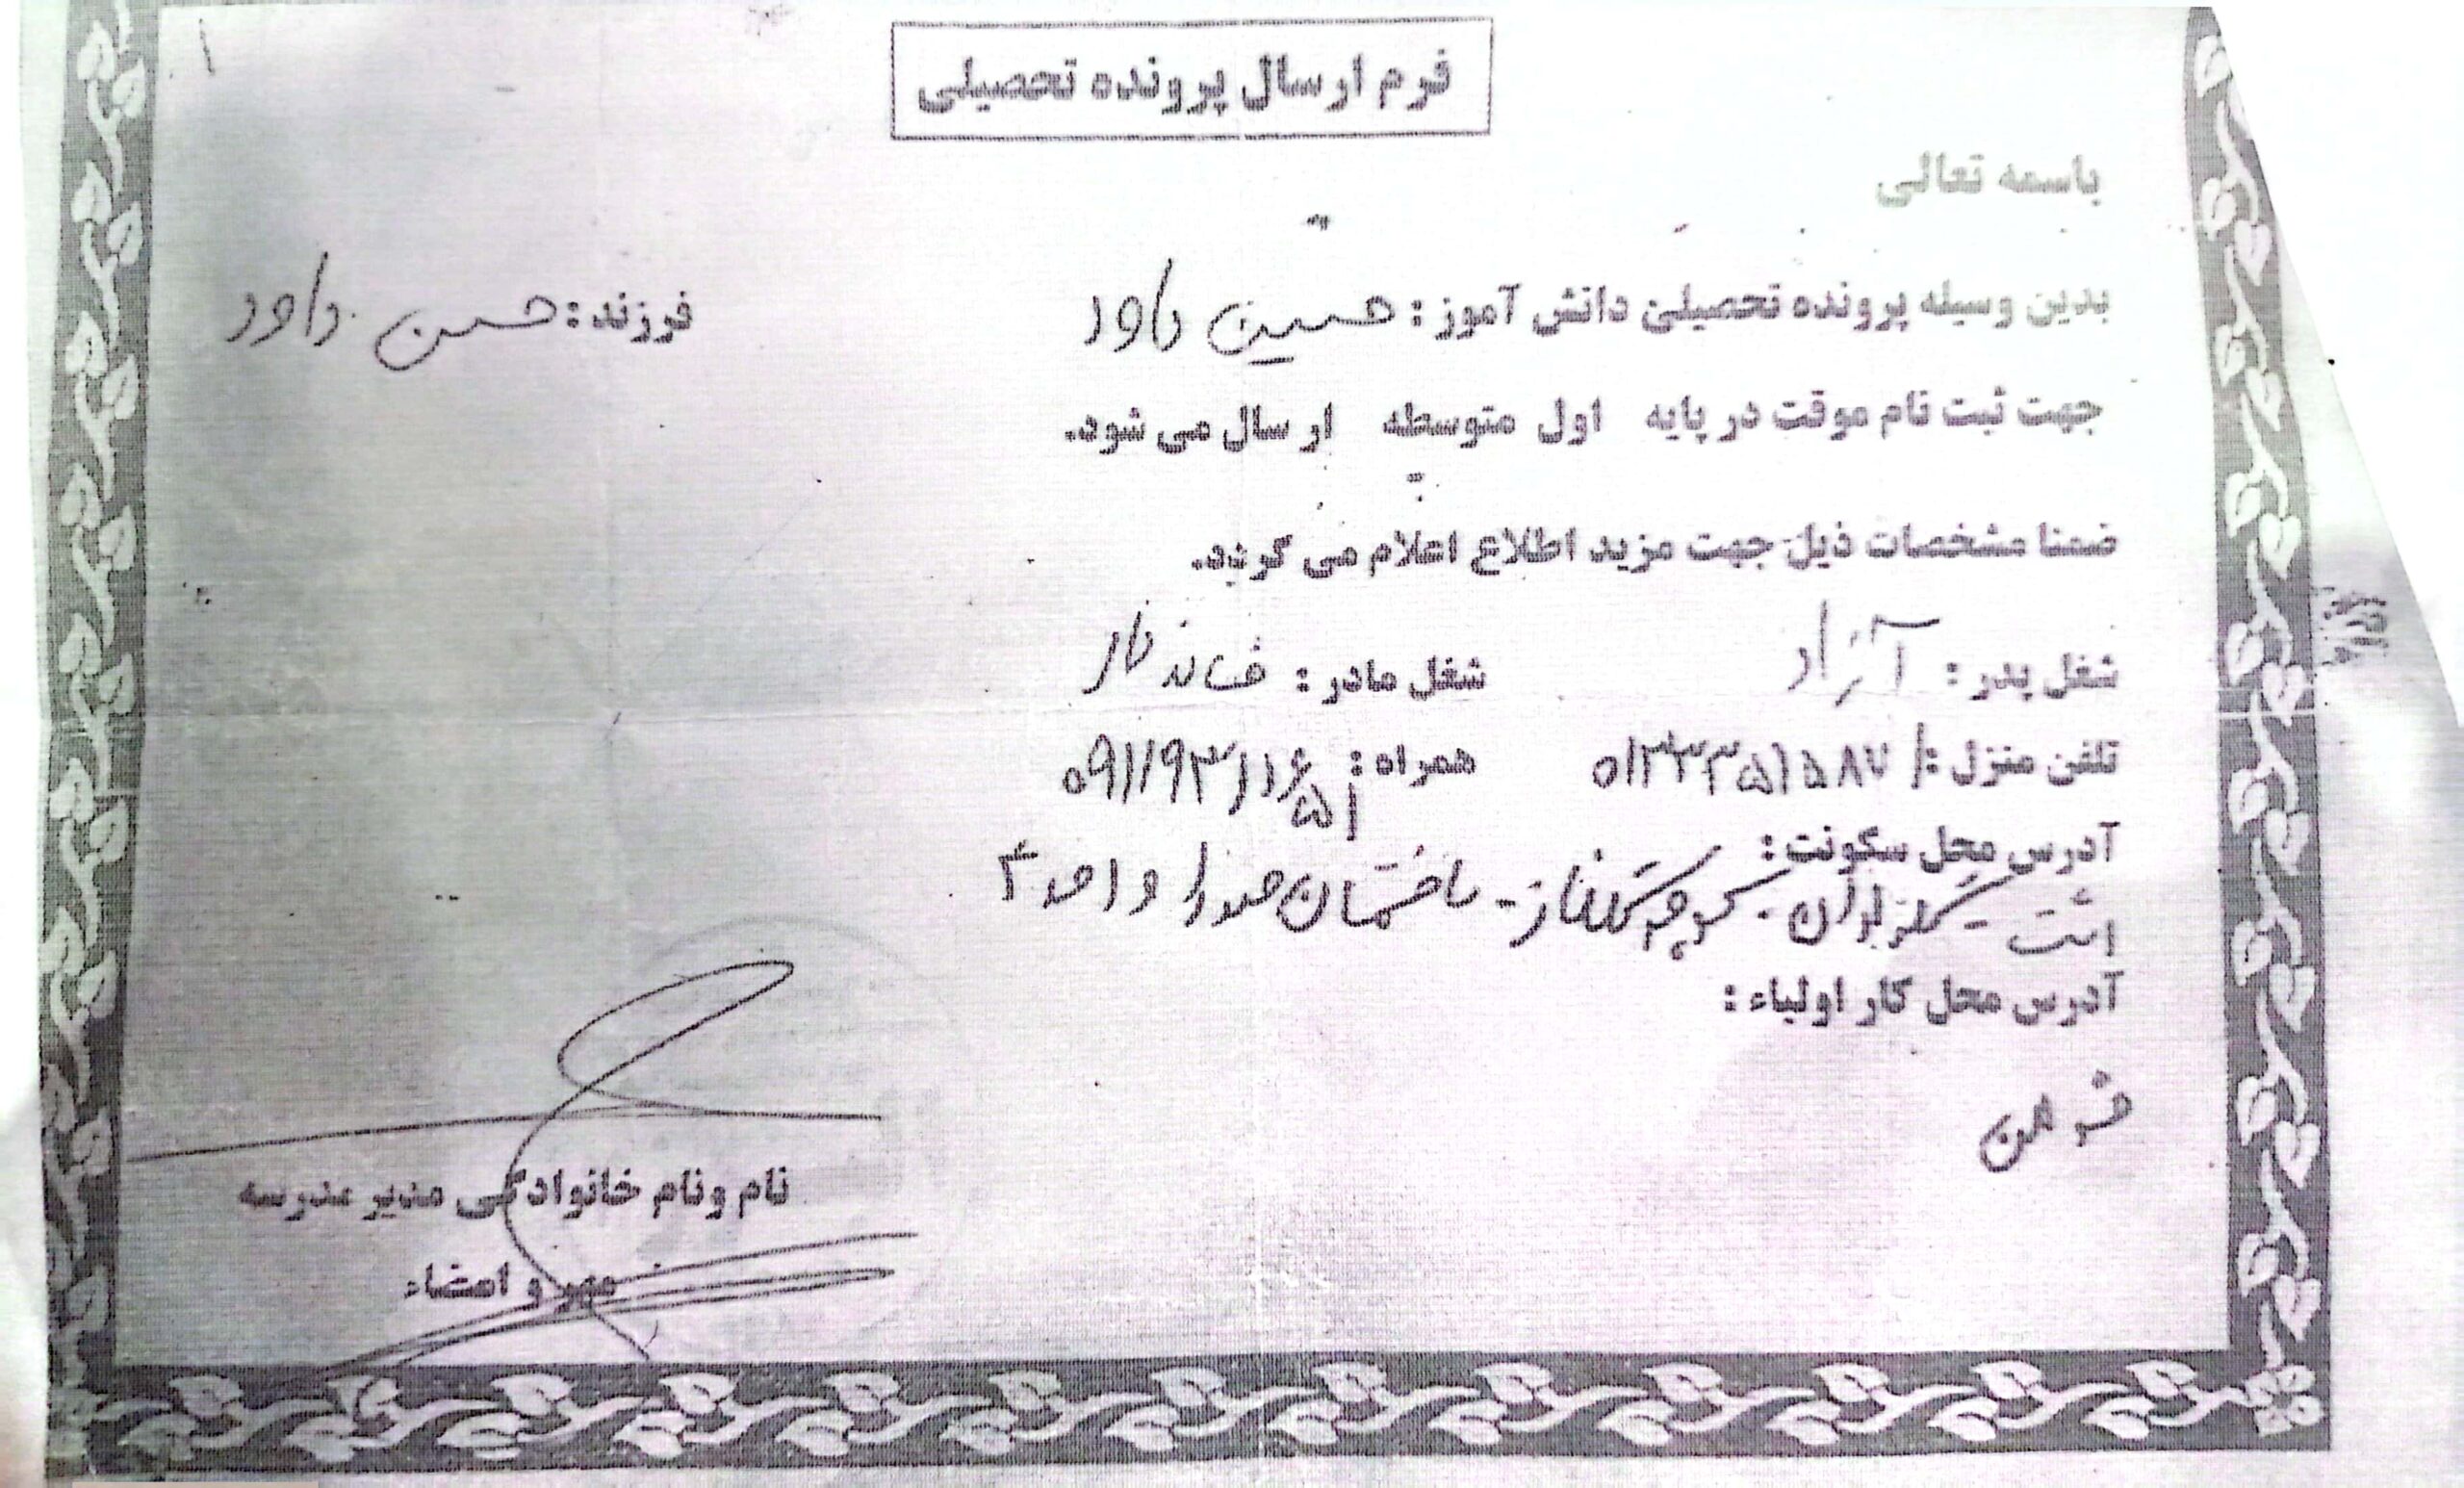 فرم ارسال پرونده تحصیلی
باسمه تعالی
بدین وسیله پرونده تحصیلی دانش آموز : حسین داور فرزند : حسن داور
جهت ثبت نام موقت در پایه اول متوسطه ارسال می شود.
ضمنا مشخصات ذیل جهت مزید اطلاع اعلام می گردد.
شغل پدر : آزاد شغل مادر : خانه دار
تلفن منزل : ۰۱۳۳۳۵۱۵۸۷ همراه : ۰۹۱۱۹۳۱۱۶۵۱
آدرس محل سکونت :
رشت - گلزاران - کوچه گلناز - ساختمان صدرا واحد ۴
آدرس محل کار اولیاء :
نام ونام خانوادگی مدیر مدرسه
مهر و امضاء